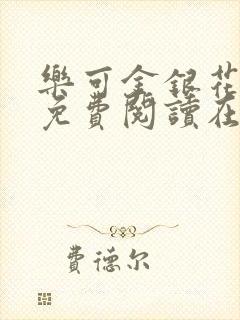 樂可金銀花
免費閱讀在
費德尔